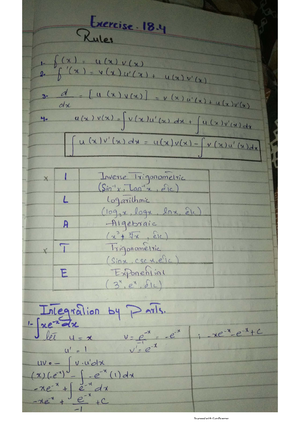 Exercise. 18.4
Rules
1. f(x) = u(x) v(x)
2. f'(x) = v(x) u'(x) + u(x) v'(x)
3. d/dx = [u(x) v(x)] = v(x) u'(x) + u(x) v'(x)
4. u(x) v(x) = ∫ v(x) u'(x) dx + ∫ u(x) v'(x) dx
∫ u(x) v'(x) dx = u(x) v(x) - ∫ v(x) u'(x) dx
x I Inverse Trigonometric
(Sin⁻¹x, tan⁻¹x, etc)
L Logarithmic
A Algebraic
x T Trigonometric
(sinx, cscx, etc)
E Exponential
(3ˣ, eˣ, etc)
Integration by Parts.
1. ∫ xe⁻ˣ dx
let u = x
u' = 1
uv - ∫ v·u' dx
(x)(-e⁻ˣ) - ∫ -e⁻ˣ (1) dx
-xe⁻ˣ + ∫ e⁻ˣ dx
-xe⁻ˣ + e⁻ˣ/-1 + C
v' = e⁻ˣ
-xe⁻ˣ - e⁻ˣ + C